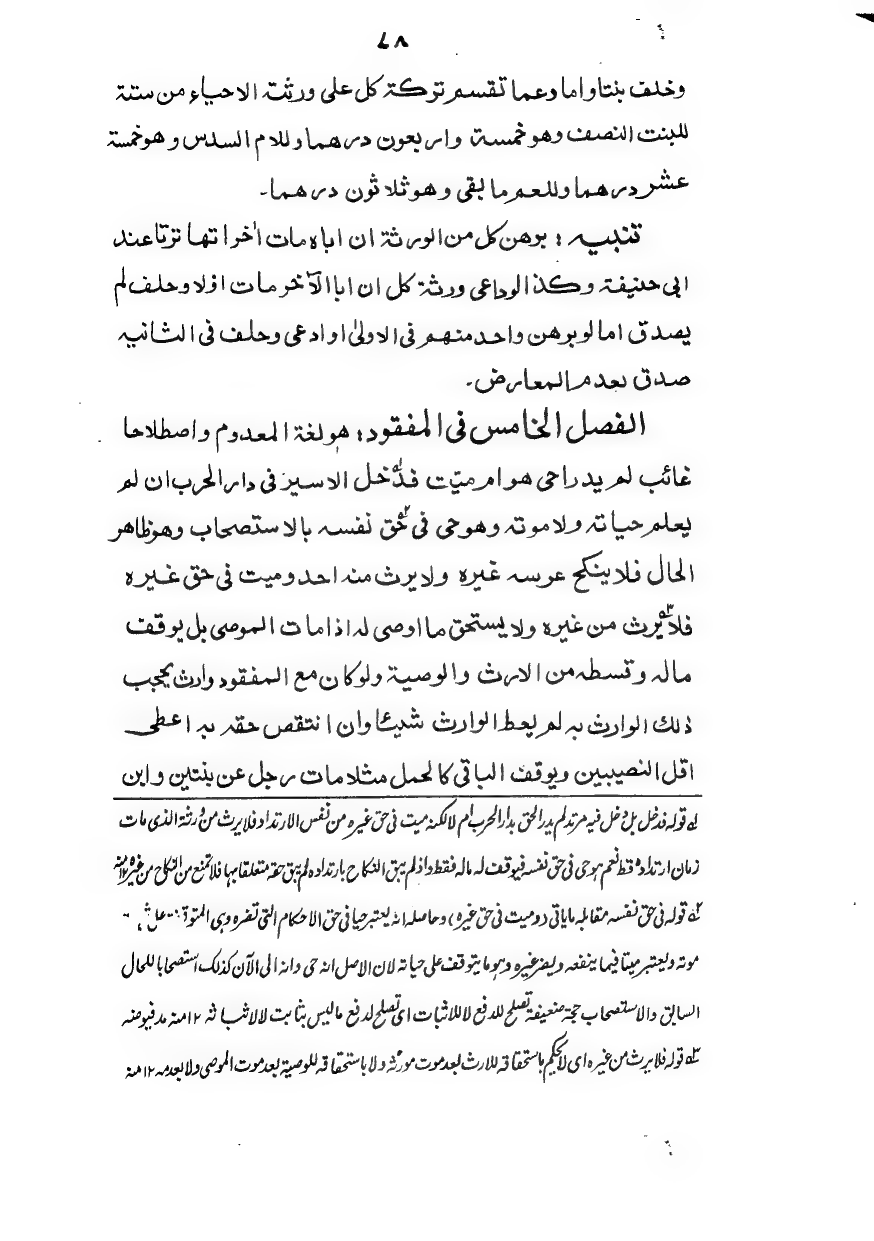 ٧٨
وخلف بنتا واما وعما تقسم تركة كل على ورثته الاحياء من ستة
للبنت النصف وهو خمسة واربعون درهما وللام السدس وهو خمسة
عشر درهما وللعم ما بقى وهو ثلاثون درهما۔
تنبيه : برهن كل من الورثة ان اباه مات اٰخرا تهاترتا عند
ابى حنيفة وكذا لوداعى ورثة كل ان ابا الآخر مات اولا وحلف لم
يصدق اما لو برهن واحد منهم فى الاولىٰ او ادعى وحلف فى الثانيه
صدق بعدم المعارض۔
الفصل الخامس فى المفقود: هو لغة المعدوم واصطلاحا
غائب لم يدر احى هو ام ميّت فدخل الاسير فى دار الحرب ان لم
يعلم حياته ولا موته وهو حى فى حق نفسه بالاستصحاب وهو ظاهر
الحال فلا ينكح عرسه غيره ولا يرث منه احد وميت فى حق غيره
فلا يرث من غيره ولا يستحق ما اوصى له اذا مات الموصى بل يوقف
ماله وقسطه من الارث والوصية ولو كان مع المفقود وارث يحجب
ذلك الوارث به لم يعط الوارث شيئا وان انتقص حقه به اعطى
اقل النصيبين ويوقف الباقى كالحمل مثلا مات رجل عن بنتين وابن
لہ قوله فدخل بل دخل فيه مرتد لم يدر الحق بدار الحرب ام لا لكنه ميت فى حق غيره من نفس الارتداد فلا يرث من ورثه الذى مات
زمان ارتداده قط نعم هو حى فى حق نفسه فيوقف له ماله فقط واذ لم يبق النكاح بارتداده لم يبق حقه متعلقا بها فلا تمنع من النكاح من غيره ١٢ منه
٢ه قوله فى حق نفسه مقابله ما ياتى وميت فى حق غيره) وحاصله انه يعتبر حيا فى حق الاحكام التى تضره وهى المتوقفة على ثبوت
موته ويعتبر ميتا فيما ينفعه ويضر غيره وهو ما يتوقف على حياته لان الاصل انه حى وانه الى الآن كذلك استصحابا للحال
السابق والاستصحاب حجة ضعيفة تصلح للدفع لا للاثبات اى تصلح لدفع ما ليس بثابت لا لاثباته ١٢ منه
٣ه قوله فلا يرث من غيره اى لا يحكم باستحقاقه للارث بعد موت مورثه ولا باستحقاقه للوصية بعد موت الموصى ولا بعدمه ١٢ منه